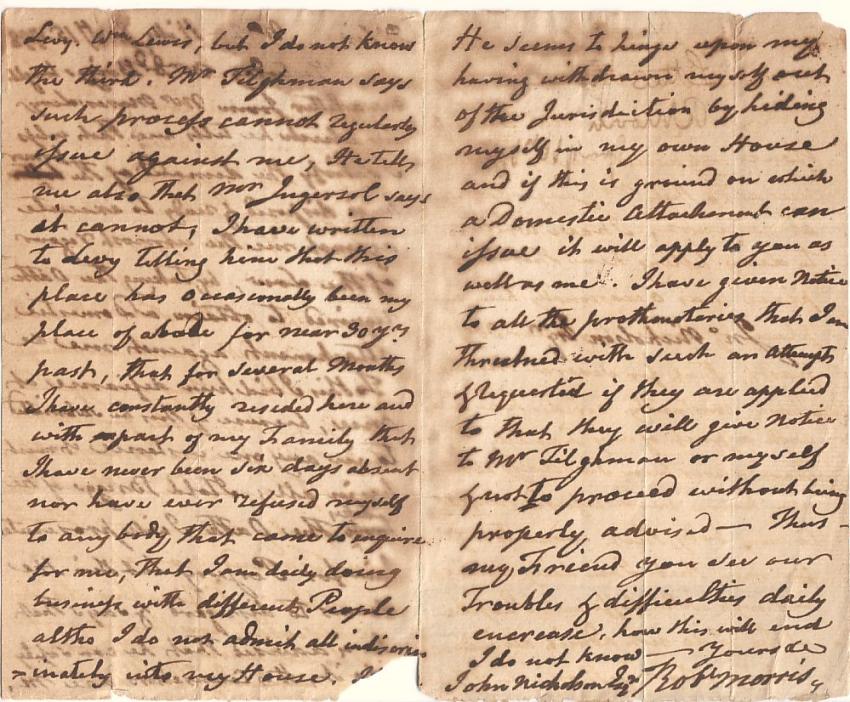 Levy. Wm Lewis, but I do not know
the third. Mr Tilghman says
such process cannot regularly
issue against me, He tells
me also that Mr Ingersol says
it cannot, I have written
to Levy telling him that this
place has occasionally been my
place of abode for near 30 yrs
past, that for several Months
I have constantly resided here and
with part of my Family that
I have never been six days absent
nor have ever refused myself
to any body that came to enquire
for me, That I am daily doing
business with different People
altho I do not admit all indiscrim
=inately into my House.
He seems to hinge upon my
having withdrawn myself out
of the Jurisdiction by hiding
myself in my own House
and if this is ground on which
a Domestic Attachment can
issue it will apply to you as
well as me. I have given Notice
to all the prothonotaries that I am
threatned with such an attempt
& requested if they are applied
to that they will give Notice
to Mr Tilghman or myself
& not to proceed without being
properly advised — Thus —
my Friend you see our
Troubles & difficulties daily
encrease, how this will end
I do not know — Yours &c
John Nicholson Esqr Robt Morris